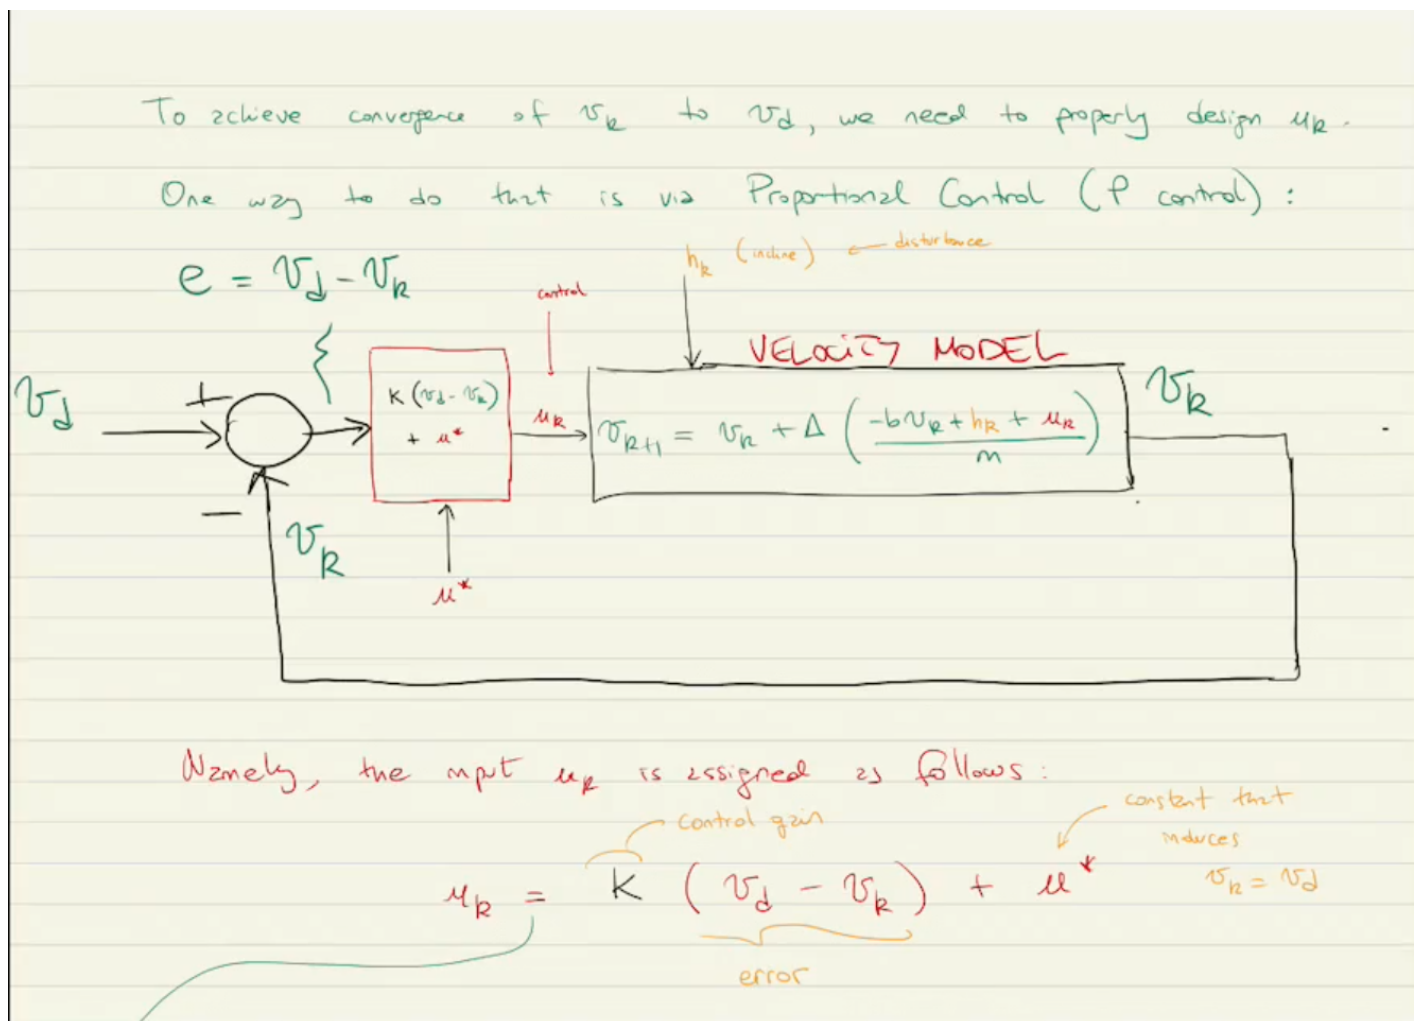 To achieve convergence of v_k to v_d, we need to properly design u_k.
One way to do that is via Proportional Control (P control):
h_k (incline) ← disturbance
e = v_d - v_k
control
VELOCITY MODEL
v_d
+
K(v_d - v_k)
+ u*
u_k
v_{k+1} = v_k + Δ ( (-b v_k + h_k + u_k) / m )
v_k
−
v_k
u*
Namely, the input u_k is assigned as follows:
control gain
constant that
induces
v_k = v_d
u_k = K (v_d - v_k) + u*
error